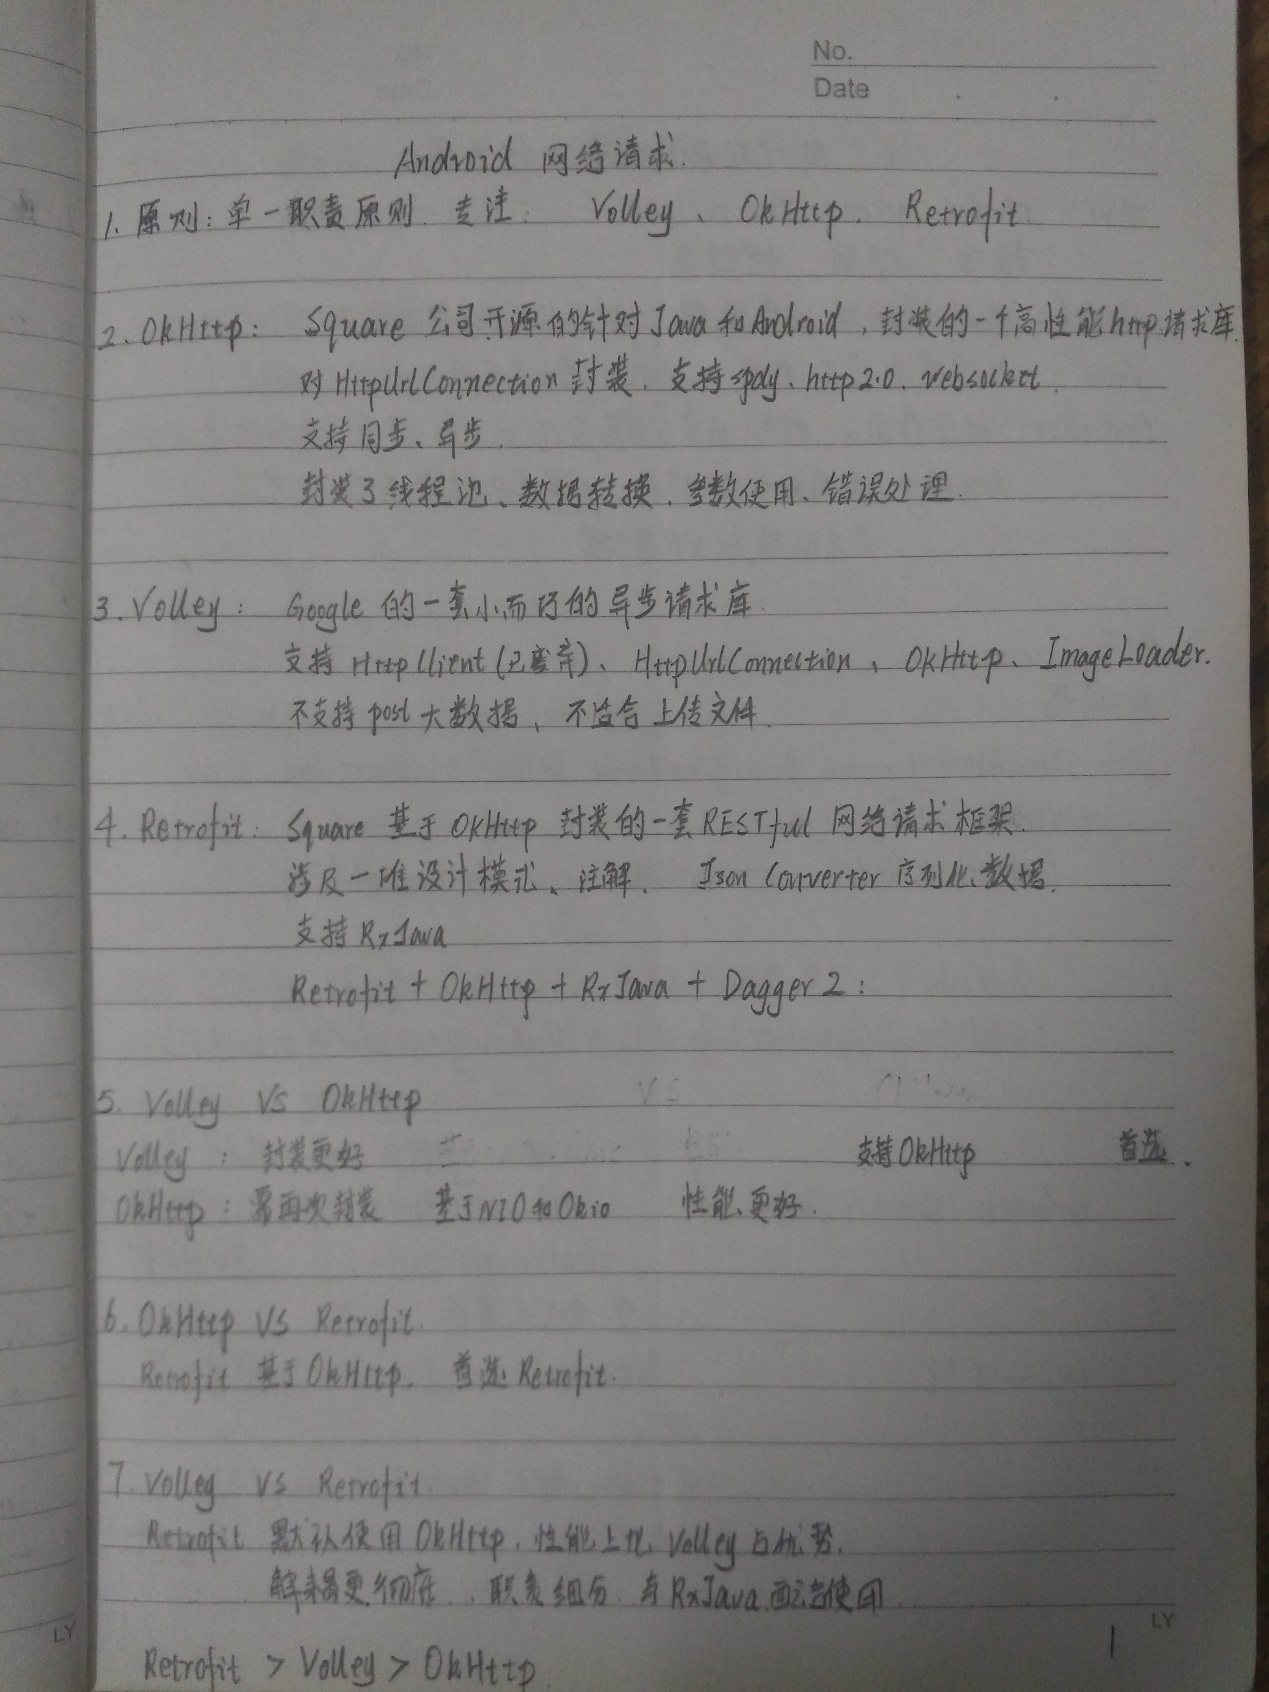 No.
Date
Android 网络请求.
1. 原则: 单一职责原则. 专注: Volley、OkHttp. Retrofit
2. OkHttp: Square 公司开源的针对Java和Android, 封装的一个高性能http请求库.
对HttpUrlConnection封装. 支持spdy、http2.0、websocket.
支持同步、异步.
封装了线程池、数据转换、参数使用、错误处理.
3. Volley: Google 的一套小而巧的异步请求库
支持HttpClient(已废弃)、HttpUrlConnection、OkHttp、ImageLoader.
不支持post大数据、不适合上传文件.
4. Retrofit: Square 基于OkHttp 封装的一套RESTful 网络请求框架.
涉及一堆设计模式、注解、Json Converter 序列化数据.
支持RxJava
Retrofit + OkHttp + RxJava + Dagger2:
5. Volley VS OkHttp
Volley: 封装更好 支持OkHttp 首选.
OkHttp: 需再次封装 基于NIO和Okio 性能更好.
6. OkHttp VS Retrofit.
Retrofit 基于OkHttp. 首选Retrofit.
7. Volley VS Retrofit.
Retrofit 默认使用OkHttp, 性能上比Volley占优势.
解耦更彻底, 职责细分. 与RxJava配合使用
Retrofit > Volley > OkHttp.
LY
LY
1